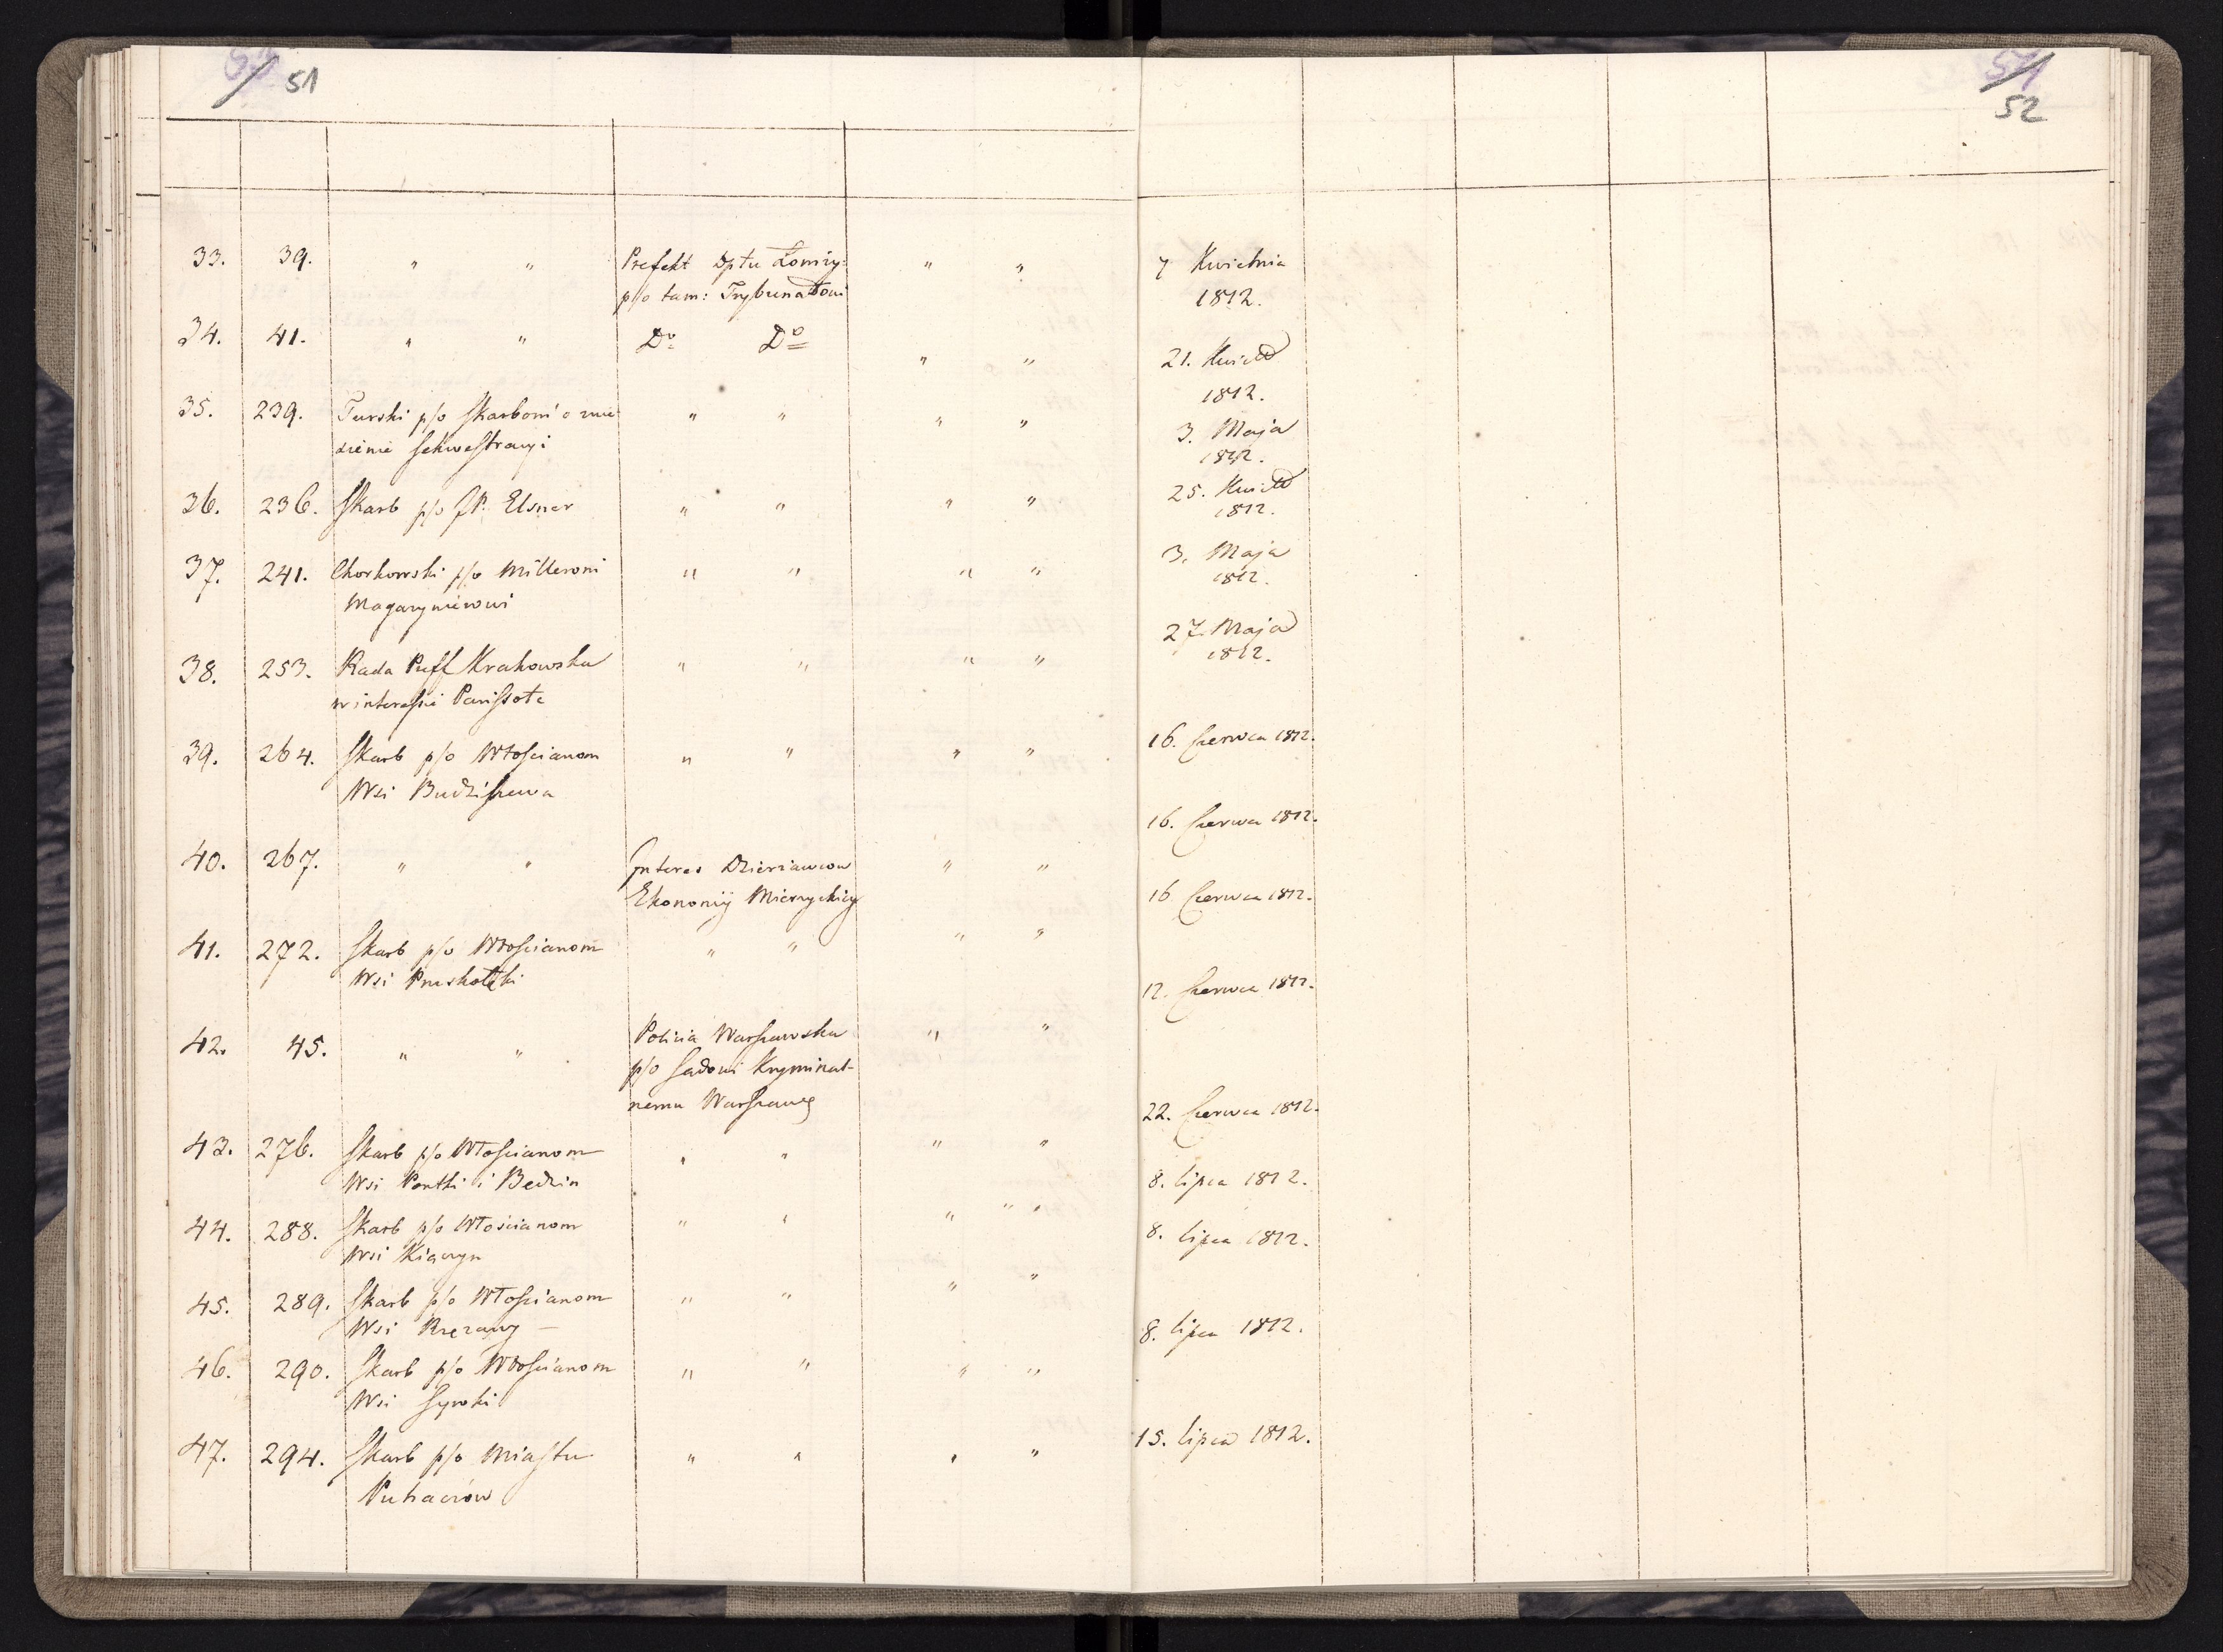 51
52
33. 39. " " Prefekt Dptu Łomży: " " 7 Kwietnia
p/o tam: Trybunałowi 1812.
34. 41. " " Do Do " " 21. Kwiet
1812.
35. 239. Turski p/o Skarbowi o znie " " " " 3. Maja
sienie sekwestracyi 1812.
36. 236. Skarb p/o JP. Elsner " " " " 25. Kwiet
1812.
37. 241. Chorkowski p/o Millerowi " " " " 3. Maja
Magazynierowi 1812.
38. 253. Rada Preff Krakowska " " " " 27. Maja
w interesie Parissota 1812.
39. 264. Skarb p/o Włościanom " " " " 16. Czerwca 1812.
Wsi Budziszewa
40. 267. " " Interes Dzierżawców " " 16. Czerwca 1812.
Ekonomij
41. 272. Skarb p/o Włościanom " " " " 16 Czerwca 1812.
Wsi
42. 45. " " Policia Warszawska " " 12. Czerwca 1812.
p/o Sadowi Kryminal-
nemu Warszaws
43. 276. Skarb p/o Włościanom " " " " 22. Czerwca 1812.
Wsi i Bedzin
44. 288. Skarb p/o Włościanom " " " " " 8. lipca 1812.
Wsi
45. 289. Skarb p/o Włościanom " " " " 8. lipca 1812.
Wsi
46. 290. Skarb p/o Włościanom " " " " 8. lipca 1812.
Wsi
47. 294. Skarb p/o Miastu " " " " 15. lipca 1812.
Puhaczow